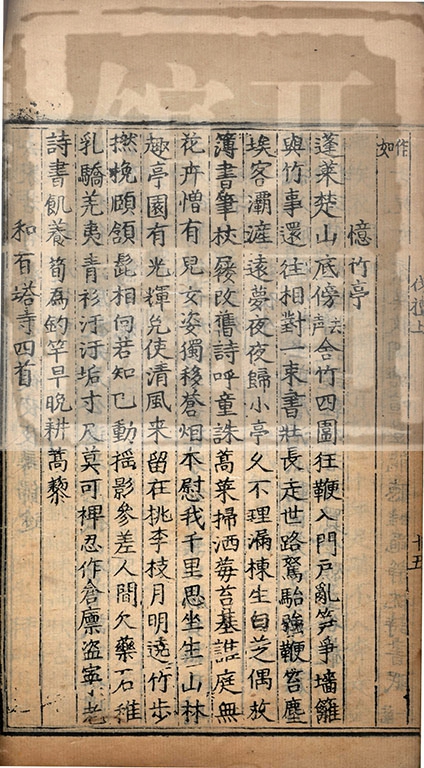 憶竹亭
蓬萊楚山底傍去聲舍竹四圍狂鞭入門戶亂笋爭墻籬
與竹事還往相對一束書壯長走世路駑駘強鞭笞塵
埃客灞滻遠夢夜夜歸小亭久不理漏棟生白芝偶放
簿書筆杖屨改舊詩呼童誅蒿萊掃洒莓苔基誰庭無
花卉憎有兒女姿獨移蒼烟本慰我千里思坐生山林
趣亭園有光輝免使清風來留在挑李枝月明遶竹步
撚挽頤頷髭相向若知已動揺影參差人間欠藥石稚
乳驕羌夷青衫汙汙垢寸尺莫可裨忍作倉廪盗寧老
詩書飢養筍為釣竿早晚耕蒿藜
和百塔寺四首